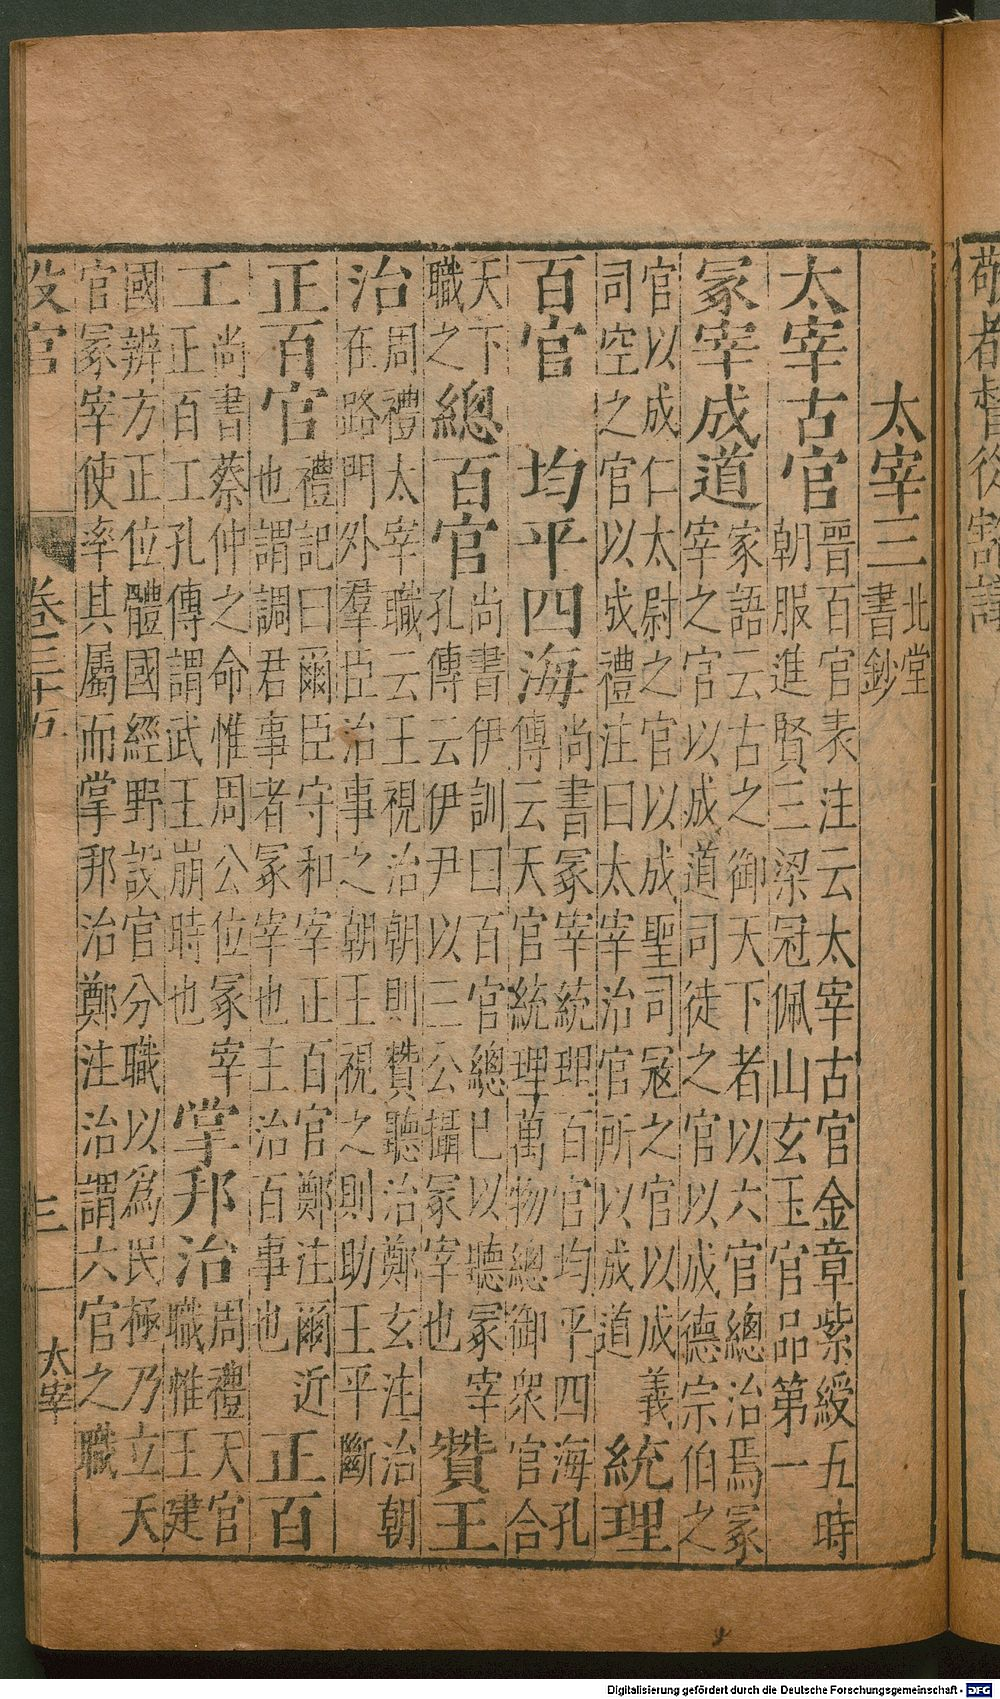 敬者督從
太宰三
北堂
書鈔
太宰古官
晉百官表注云太宰古官金章紫綬五時
朝服進賢三梁冠佩山玄玉官品第一
冢宰成道
家語云古之御天下者以六官總治焉冢
宰之官以成道司徒之官以成德宗伯之
官以成仁太尉之官以成聖司冦之官以成義
司空之官以成禮注曰太宰治官所以成道
統理
百官
均平四海
尚書冢宰統理百官均平四海孔
傳云天官統理萬物總御衆官合
天下
職之
總百官
尚書伊訓曰百官總已以聽冢宰
孔傳云伊尹以三公攝冢宰也
贊王
治
周禮太宰職云王視治朝則贊聽治鄭玄注治朝
在路門外羣臣治事之朝王視之則助王平斷
正百官
禮記曰爾臣守和宰正百官鄭注爾近
也謂調君事者冢宰也主治百事也
正百
工
尚書蔡仲之命惟周公位冢宰
正百工孔傳謂武王崩時也
掌邦治
周禮天官
職惟王建
國辨方正位體國經野設官分職以爲民極乃立天
官冢宰使率其屬而掌邦治鄭注治謂六官之職
設官
卷三十五
三
太宰
Digitalisierung gefördert durch die Deutsche Forschungsgemeinschaft - DFG